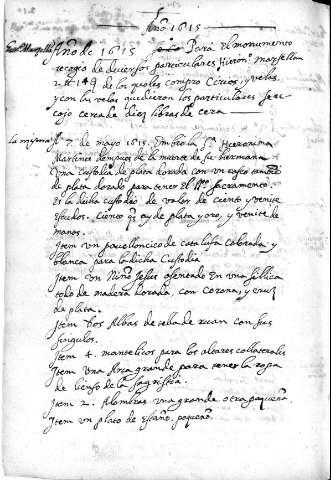 Año 1615
Año de 1615 Para el monumento
recogio de diversos particulares Hieron. marsellan
de los quales compro Cirios, y velas,
y con las velas quedieron los particulares se re
cojo cerca de diez libras de cera
La misma
7 de mayo 1615. Embio la Sª Hieronima
Martinez despues de la muerte de su hermana
una custodia de plata dorada con un vaso
de plata dorado para tener el SSmo Sacramento.
Es la dicha custodia de valor de ciento y veinte
escudos. Ciento de plata y oro, y veinte de
manos.
Item un pavelloncico de catalufa colorada y
blanca para la dicha Custodia
Item un Niño Jesus asentado en una sillica
todo de madera dorada, con corona, y cruz
de plata.
Item Dos Albas de tela de ruan con sus
singulos.
Item 4. mantelicos para los altares collaterales
Item una Arca grande para tener la ropa
de lienso de la sagristia.
Item 2. Alombras una grande otra pequeña.
Item un plato de estaño pequeño.